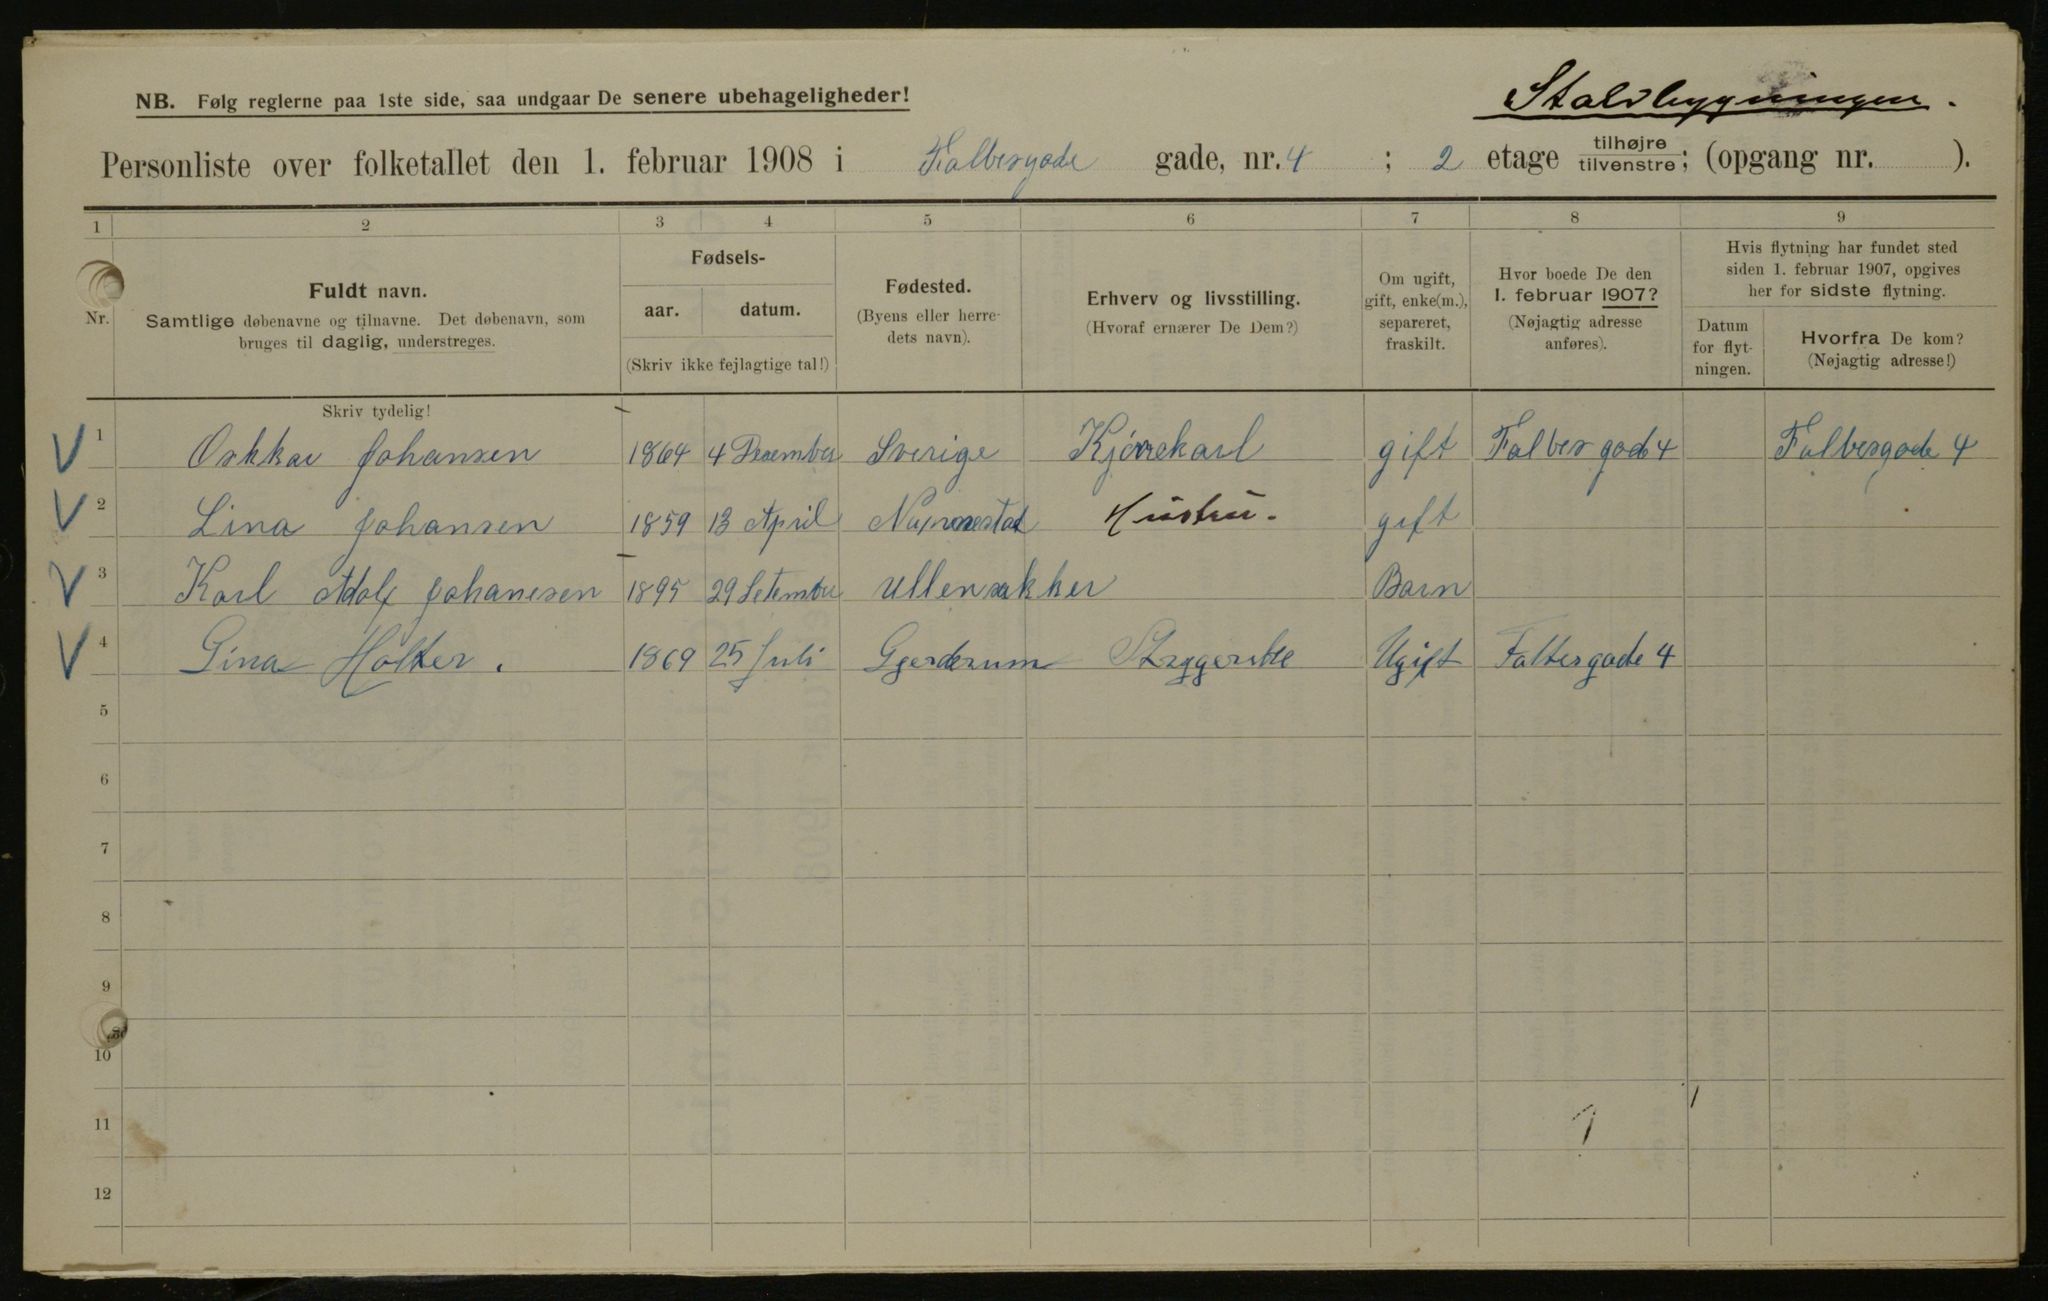 Staldbygningen.
NB. Følg reglerne paa 1ste side, saa undgaar De senere ubehageligheder!
Personliste over folketallet den 1. februar 1908 i Falbesgade gade, nr. 4 ; 2 etage tilhøjre tilvenstre; (opgang nr. ).
1 2 3 4 5 6 7 8 9
Nr.
Fuldt navn.
Samtlige døbenavne og tilnavne. Det døbenavn, som
bruges til daglig, understreges.
Fødsels-
aar. datum.
(Skriv ikke fejlagtige tal!)
Fødested.
(Byens eller herre-
dets navn).
Erhverv og livsstilling.
(Hvoraf ernærer De Dem?)
Om ugift,
gift, enke(m.),
separeret,
fraskilt.
Hvor boede De den
1. februar 1907?
(Nøjagtig adresse
anføres).
Hvis flytning har fundet sted
siden 1. februar 1907, opgives
her for sidste flytning.
Datum
for flyt-
ningen.
Hvorfra De kom?
(Nøjagtig adresse!)
Skriv tydelig!
1 Oskkar Johansen 1864 4 Desember Sverige Kjørekarl gift Falbes gade 4 Falbesgade 4
2 Lina Johansen 1859 13 April Nannestad Hustru. gift
3 Karl Adolf Johanesen 1895 29 Setember Ullensakker Barn
4 Lina Holter. 1869 25 Juli Gjerderum Ugift Falbesgade 4
5
6
7
8
9
10
11
12